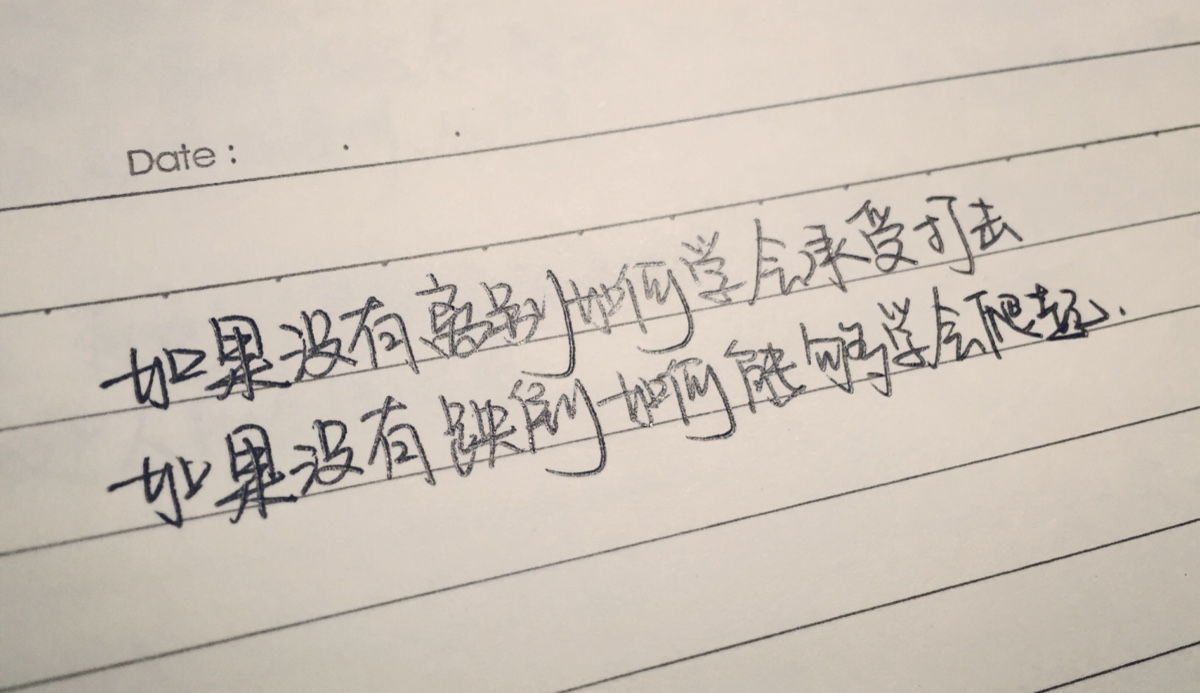 Date:
如果没有离别如何学会承受打击
如果没有跌倒如何能够学会爬起.